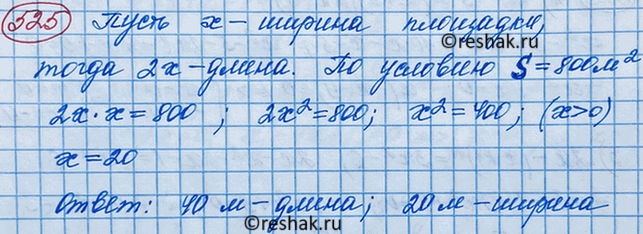 525 Пусть x - ширина площадки,
©reshak.ru
тогда 2x - длина. По условию S = 800 м²
2x · x = 800 ; 2x² = 800; x² = 400; (x>0)
x = 20
Ответ: 40 м - длина; 20 м - ширина
©reshak.ru